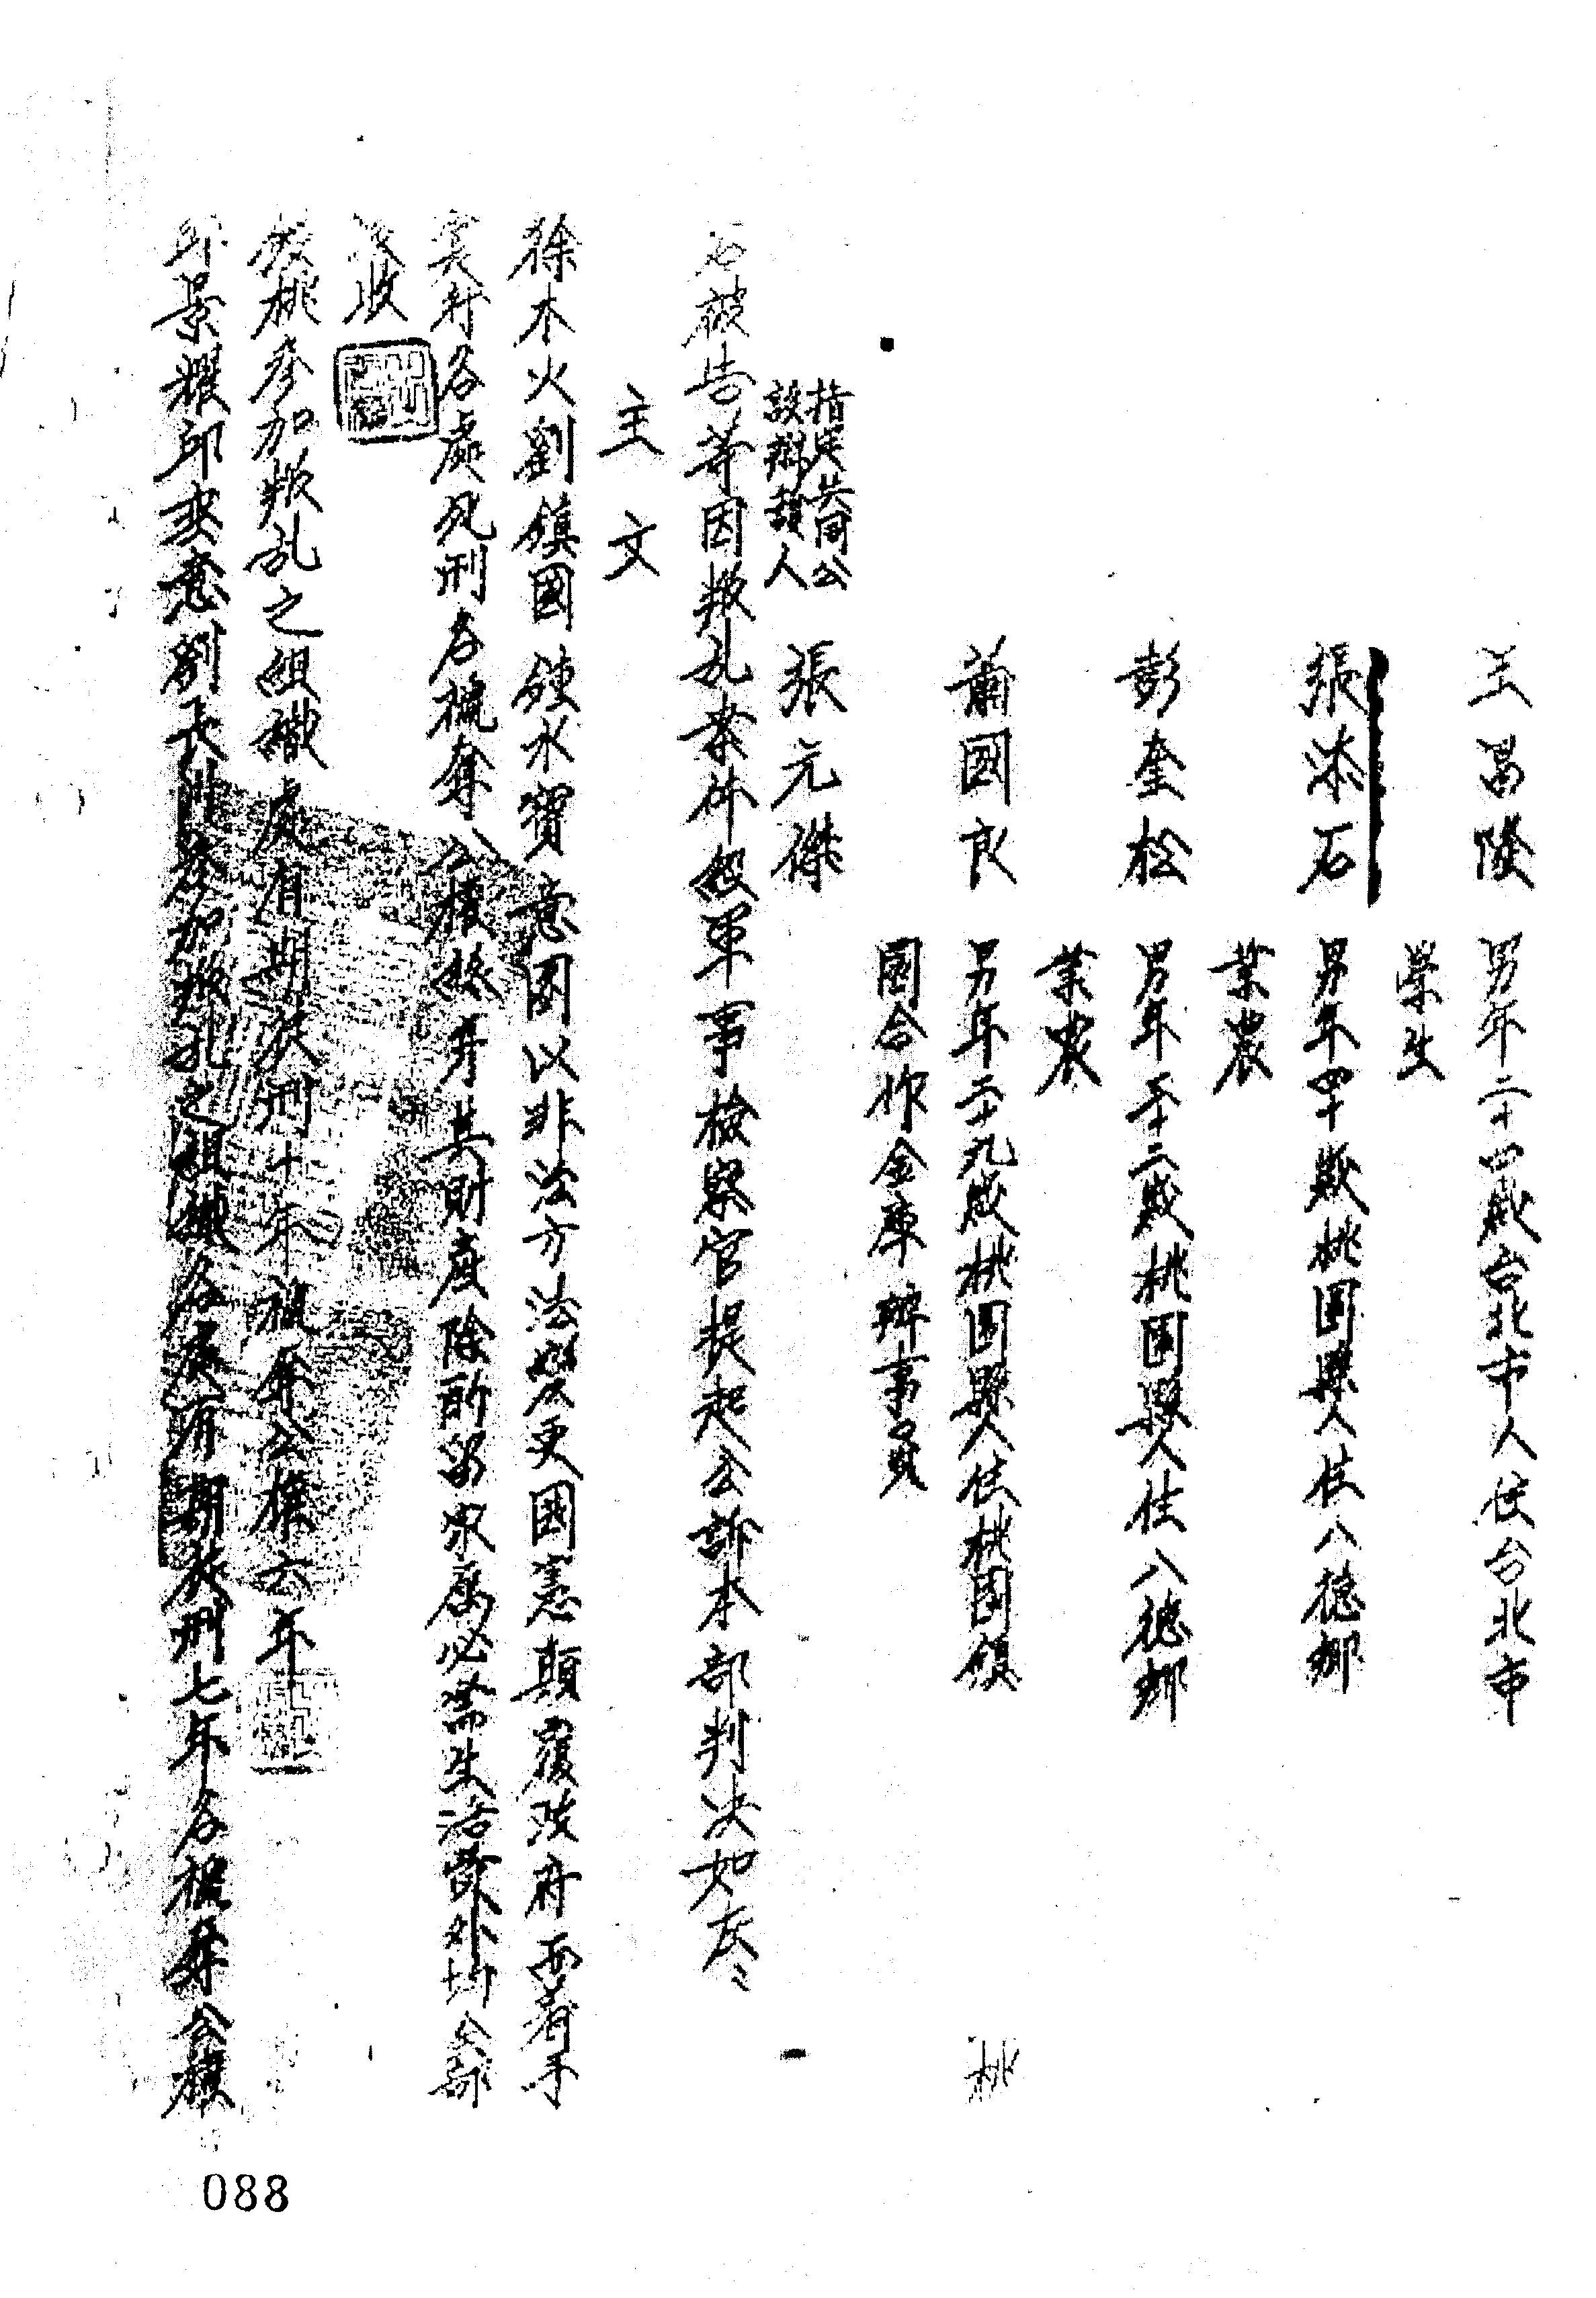 王昌隆 男年二十四歲台北市人住台北市
學生
張添石 男年四十歲桃園縣人住八德鄉
業農
彭奎松 男年五十二歲桃園縣人住八德鄉
業農
蕭國良 男年二十九歲桃園縣人住桃園鎮 桃
國合作金庫辦事員
指定共同公
設辯護人 張元傑
右被告等因叛乱案件經軍事檢察官提起公訴本部判決如左:
主文
徐木火劉鎮國鍾水寶意圖以非法方法變更國憲顛覆政府而著手
實行各處死刑各褫奪公權終身其財產除酌留家屬必需生活費外均全部
沒收
桃參加叛乱之組織處有期徒刑十年褫奪公權六年
邱景耀邱妻意劉長 參加叛乱之組織各處有期徒刑七年各褫奪公權
088